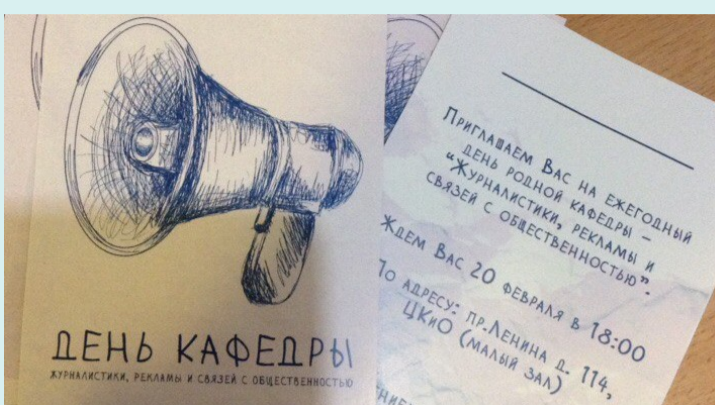 ДЕНЬ КАФЕДРЫ
ЖУРНАЛИСТИКИ, РЕКЛАМЫ И СВЯЗЕЙ С ОБЩЕСТВЕННОСТЬЮ
ПРИГЛАШАЕМ ВАС НА ЕЖЕГОДНЫЙ
ДЕНЬ РОДНОЙ КАФЕДРЫ –
“ЖУРНАЛИСТИКИ, РЕКЛАМЫ И
СВЯЗЕЙ С ОБЩЕСТВЕННОСТЬЮ”.
ЖДЕМ ВАС 20 ФЕВРАЛЯ В 18:00
ПО АДРЕСУ: ПР.ЛЕНИНА Д. 114,
ЦКиО (МАЛЫЙ ЗАЛ)